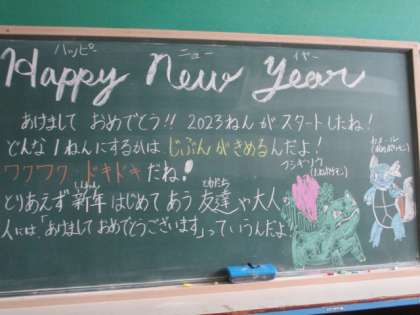 ハッピー ニュー イヤー
Happy New Year
あけまして おめでとう!! 2023ねん がスタートしたね!
どんな1ねんにするかは じぶんがきめるんだよ!
ワクワク ドキドキだね!
フシギソウ
カメール
とりあえず 新年 はじめて あう 友達や大人の
しんねん ともだち
人には「あけましておめでとうございます」っていうんだよ!